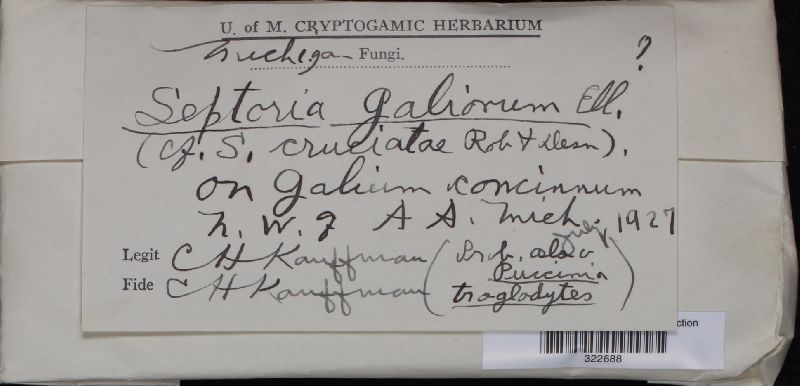 U. of M. CRYPTOGAMIC HERBARIUM
Michigan Fungi. ?
Septoria galiorum Ell.
(cf. S. cruciatae Rob & Desm).
on Galium concinnum
N. W. of A A. Mich. 1927
July
Legit C H Kauffman (Prob. also
Puccinia
Fide C H Kauffman troglodytes)
ction
322688